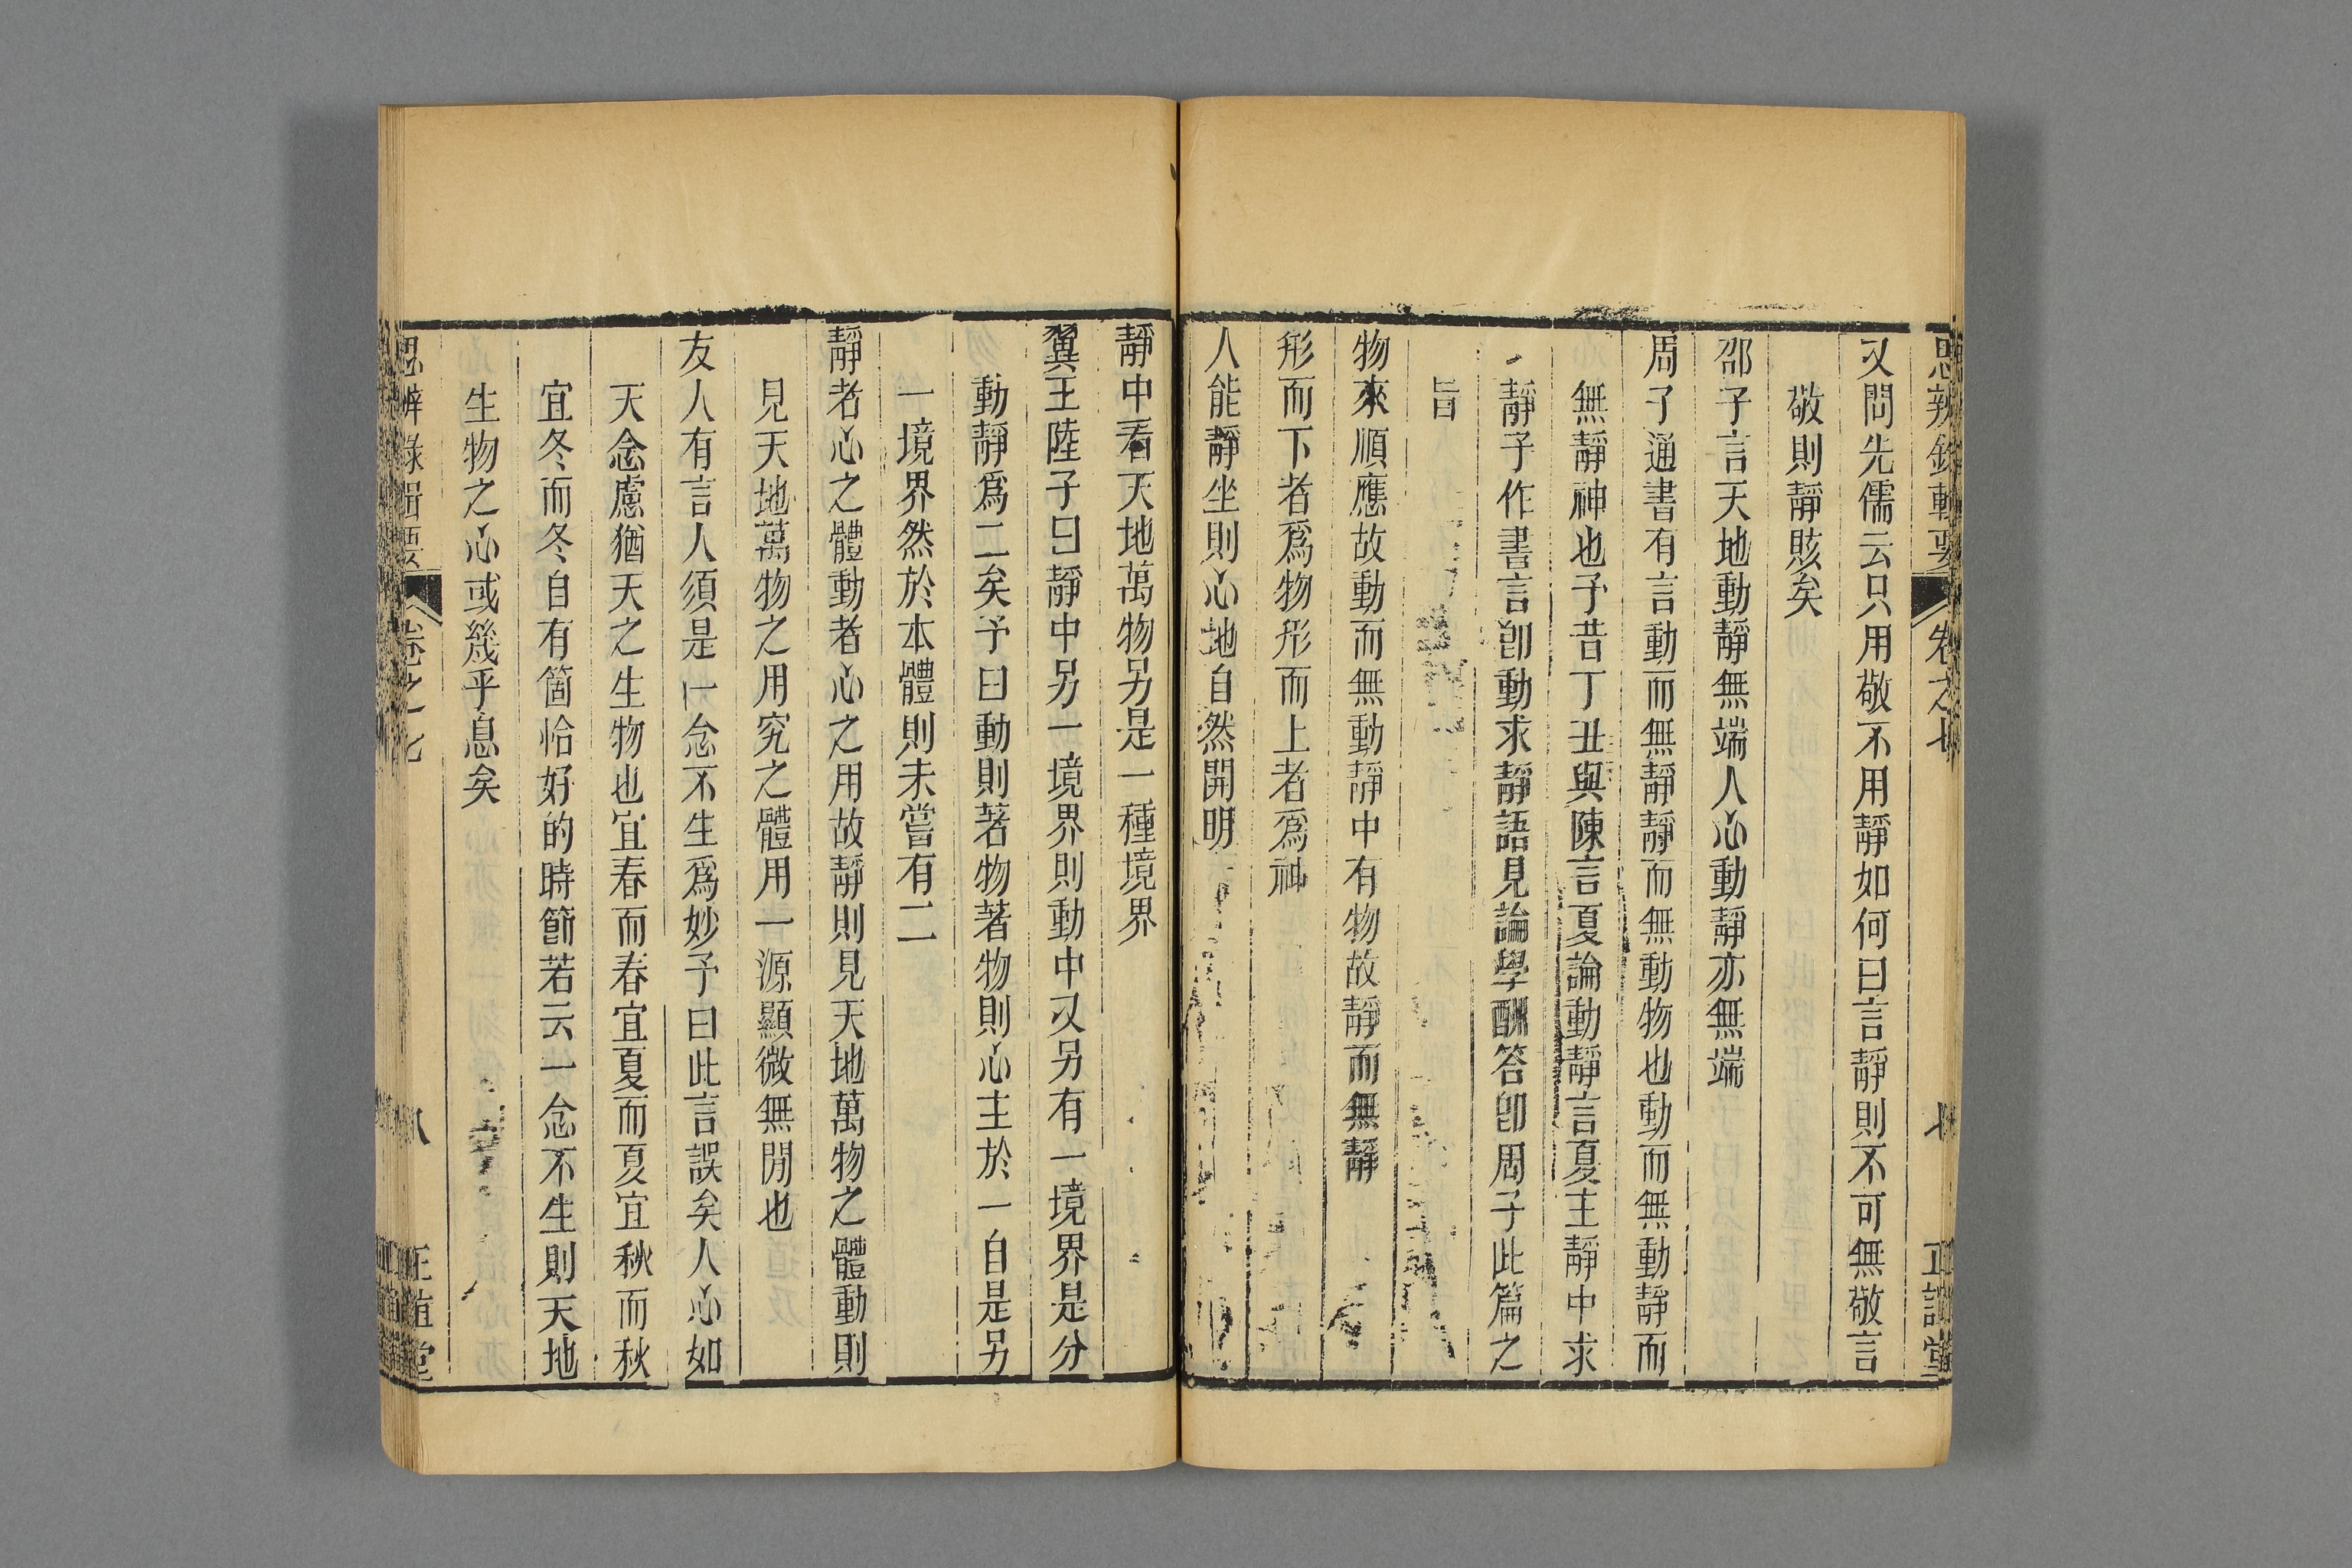 思辨錄輯要 卷之七 七 正誼堂
又問先儒云只用敬不用靜如何曰言靜則不可無敬言
敬則靜賅矣
邵子言天地動靜無端人心動靜亦無端
周子通書有言動而無靜靜而無動物也動而無動靜而
無靜神也予昔丁丑與陳言夏論動靜言夏主靜中求
靜子作書言卽動求靜語見論學酬答卽周子此篇之
旨
物來順應故動而無動靜中有物故靜而無靜
形而下者爲物形而上者爲神
人能靜坐則心地自然開明
靜中看天地萬物另是一種境界
翼王陸子曰靜中另一境界則動中又另有一境界是分
動靜爲二矣予曰動則著物著物則心主於一自是另
一境界然於本體則未嘗有二
靜者心之體動者心之用故靜則見天地萬物之體動則
見天地萬物之用究之體用一源顯微無閒也
友人有言人須是一念不生爲妙予曰此言誤矣人心如
天念慮猶天之生物也宜春而春宜夏而夏宜秋而秋
宜冬而冬自有箇恰好的時節若云一念不生則天地
生物之心或幾乎息矣
思辨錄輯要 卷之七 八 正誼堂